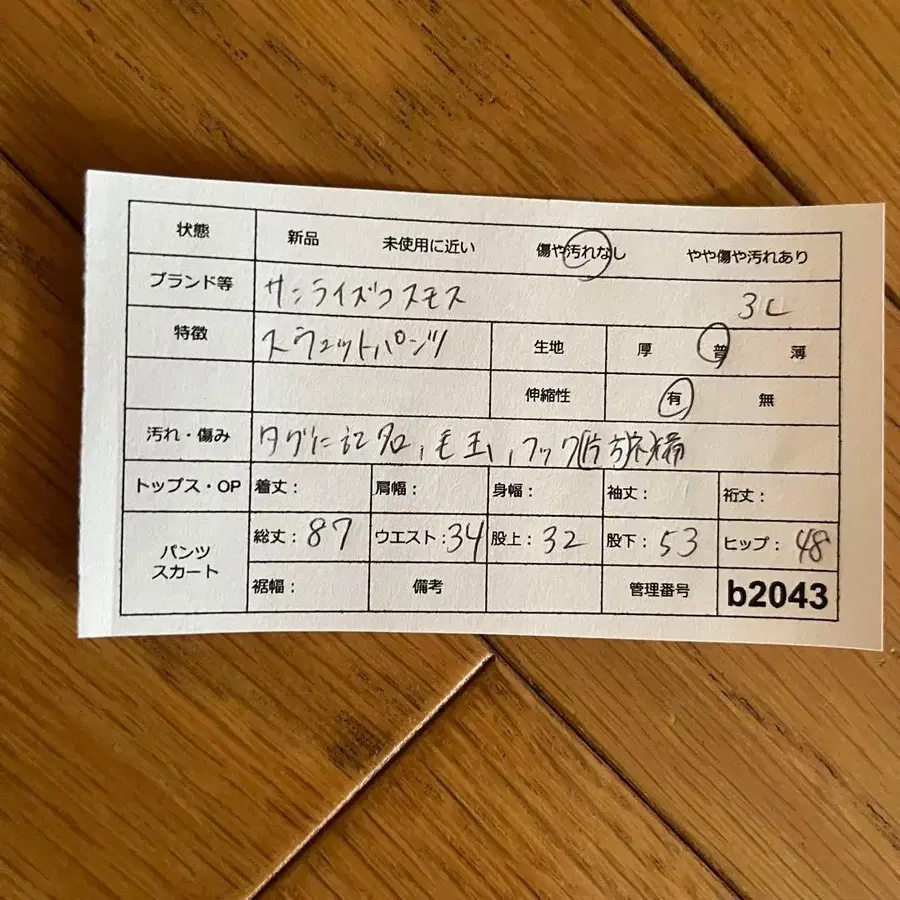 状態 新品 未使用に近い 傷や汚れなし やや傷や汚れあり
ブランド等 サンライズコスモス 3L
特徴 スウェットパンツ 生地 厚 普 薄
伸縮性 有 無
汚れ・傷み タグに記名、毛玉、フック(片方)補
トップス・OP 着丈: 肩幅: 身幅: 袖丈: 裄丈:
パンツ スカート 総丈:87 ウエスト:34 股上:32 股下:53 ヒップ:48
裾幅: 備考 管理番号 b2043